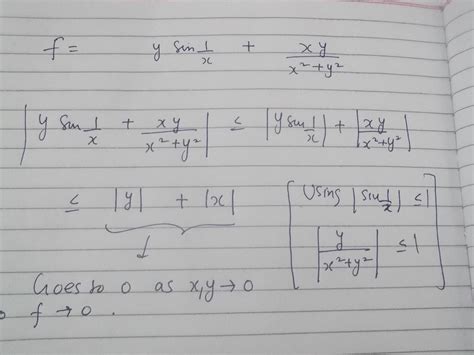 f = y sin 1/x + xy/(x²+y²)
|y sin 1/x + xy/(x²+y²)| ≤ |y sin 1/x| + |xy/(x²+y²)|
≤ |y| + |x| [Using |sin 1/x| ≤ 1
|y/(x²+y²)| ≤ 1]
↓
Goes to 0 as x,y → 0
f → 0 .